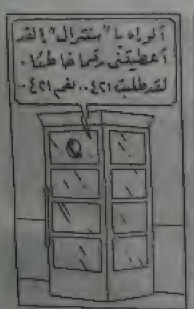 ألو! ه يا "سنترال"! لقد
أعطيتني رقما خاطئا.
لقد طلبت ٤٢١.. نعم ٤٢١..